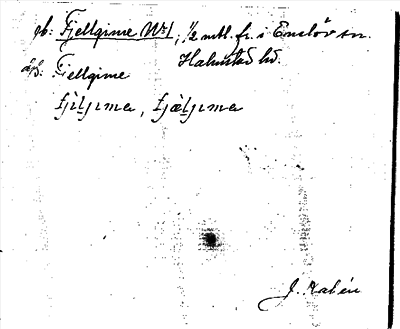 jb: Fjellgime No 1, 1/2 mtl. fr. i Enslöv sn.
Halmstad hd.
äfs: Fjellgime
fjìljıma, fjæ̀ljıma
J. Kalén